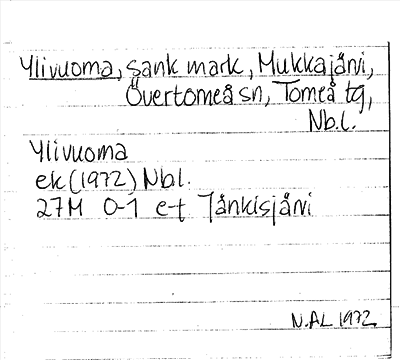 Ylivuoma, sank mark, Mukkajärvi,
Övertorneå sn, Torneå tg,
Nbl.
Ylivuoma
ek (1972) Nbl.
27M 0-1 e-f Jänkisjärvi
N.ÅL 1972